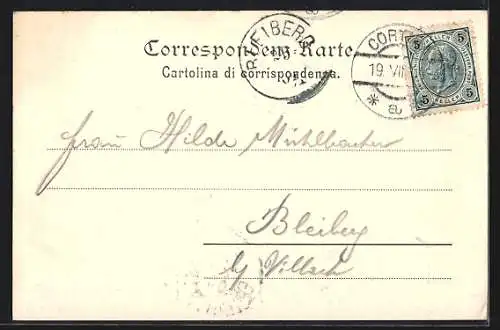 Correspondenz-Karte.
Cartolina di corrispondenza.
BLEIBERG
CORT
19. VII
5 5
5 HELLER 5
Frau Hilde Mühlbacher
Bleiberg
b/ Villach